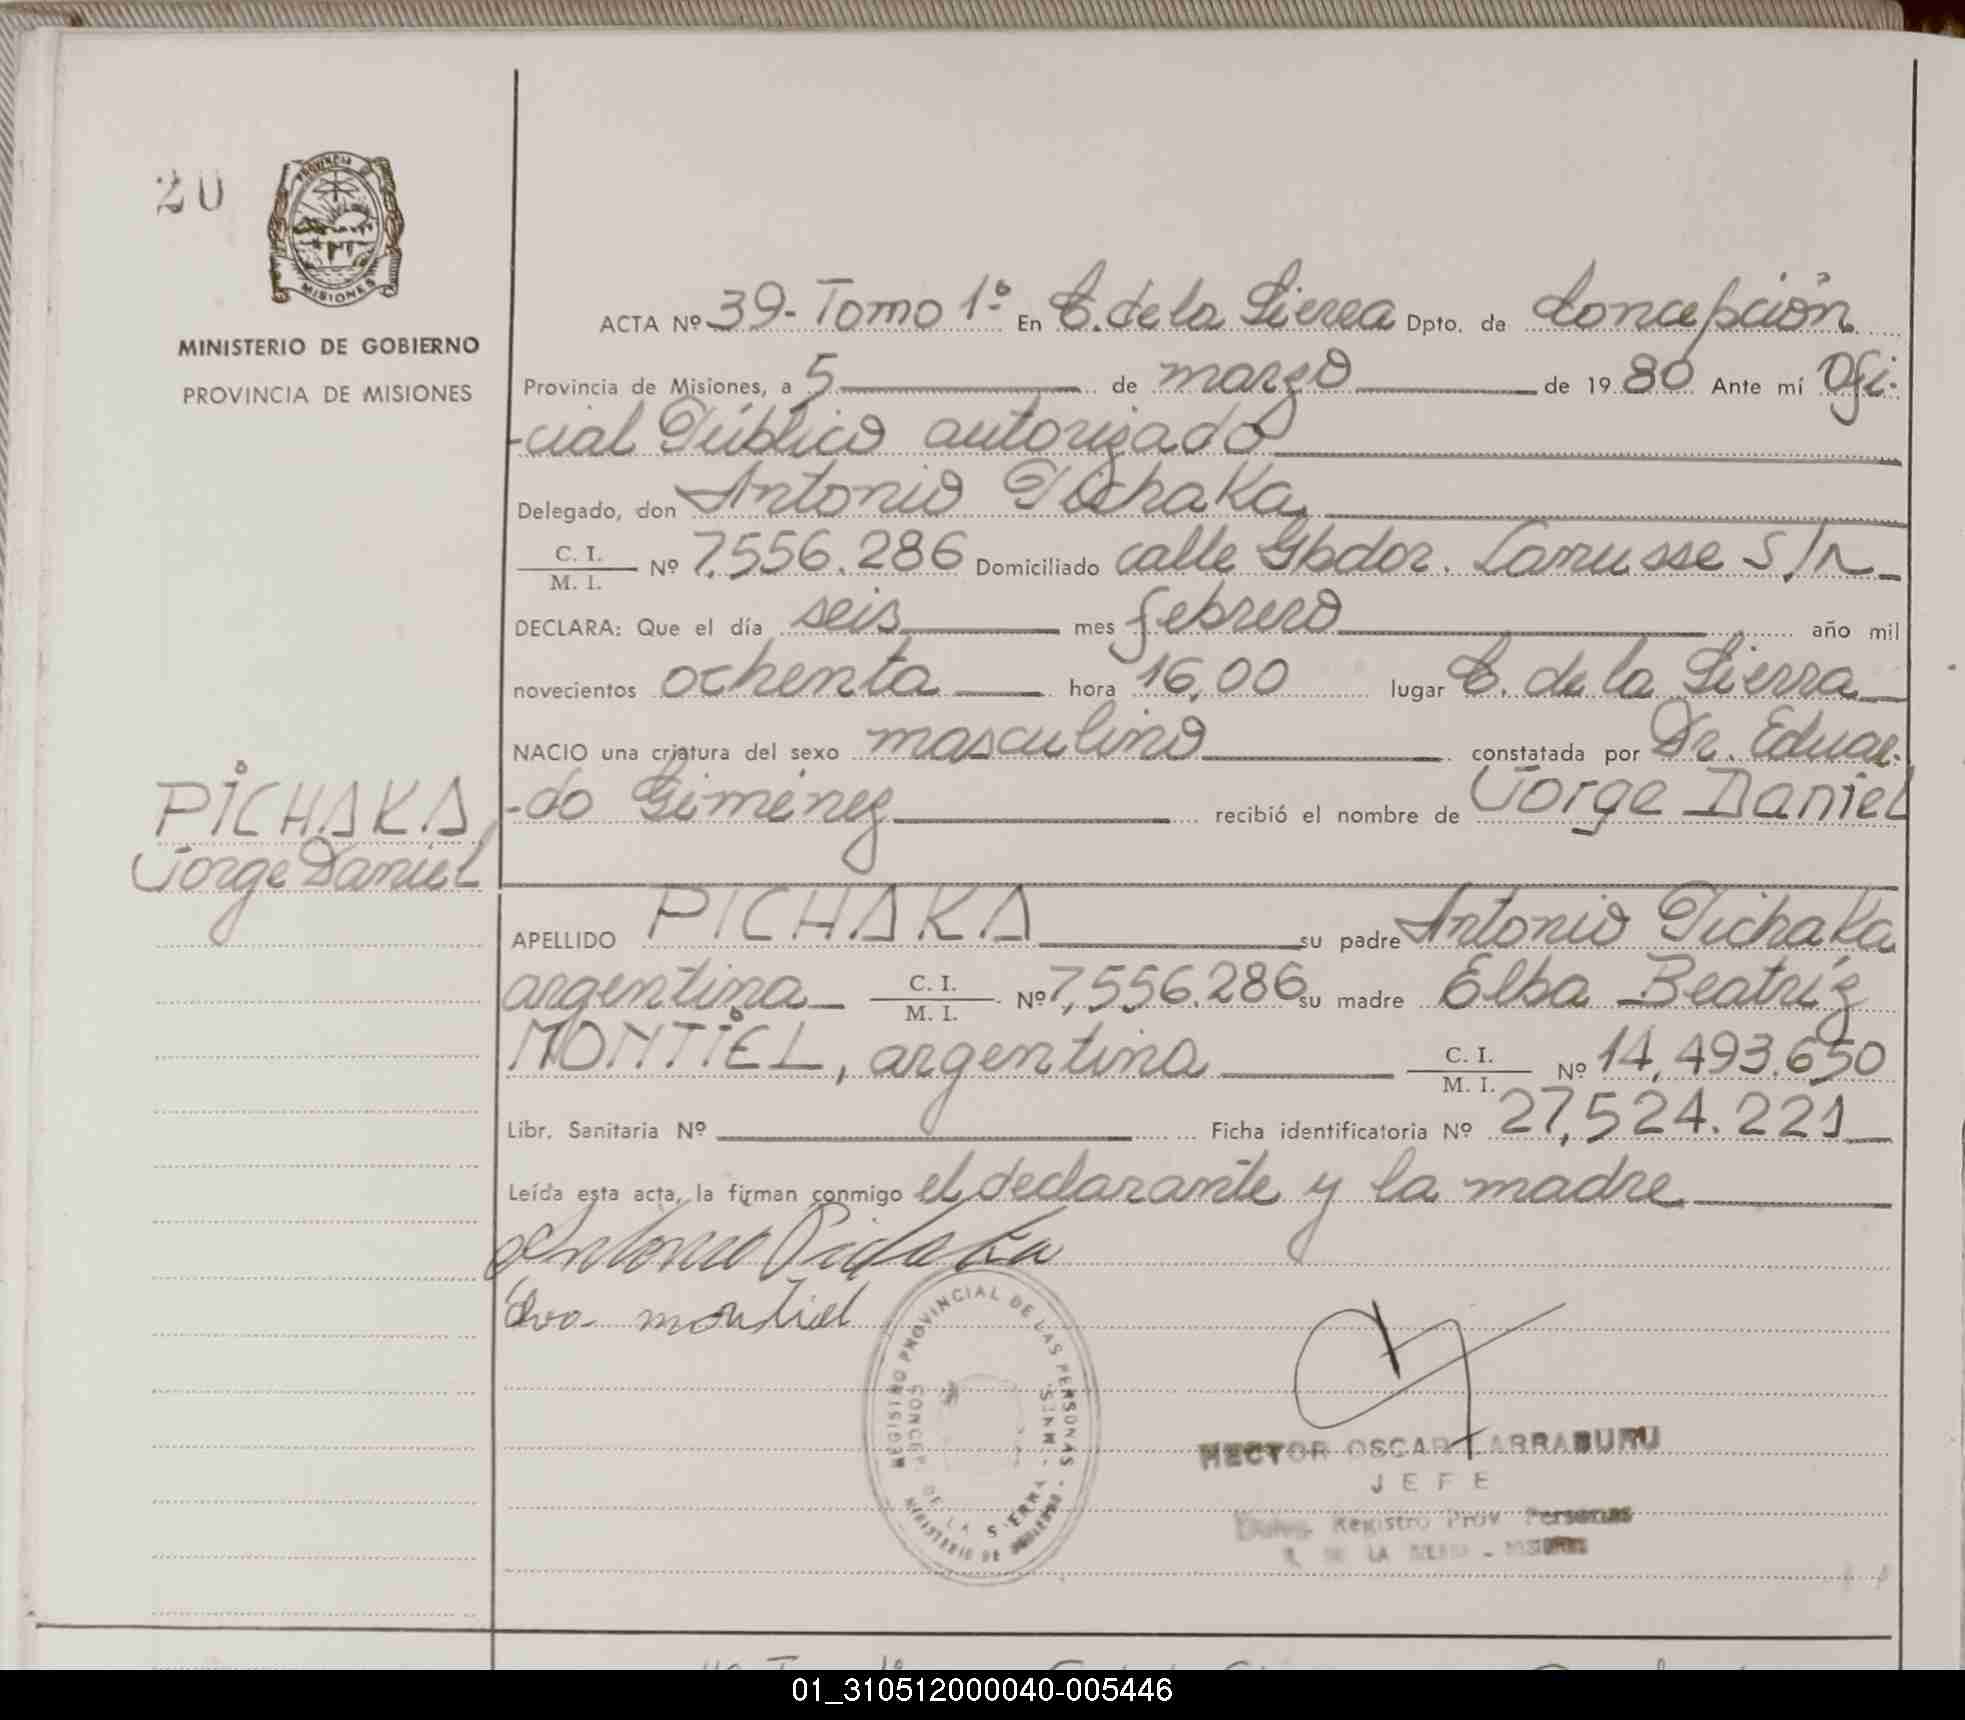 20
PROVINCIA DE
MISIONES
MINISTERIO DE GOBIERNO
PROVINCIA DE MISIONES
PICHAKA
Jorge Daniel
ACTA Nº 39- Tomo 1º En C. de la Sierra Dpto. de Concepción
Provincia de Misiones, a 5 de marzo de 1980 Ante mí Ofi-
-cial Público autorizado
Delegado, don Antonio Pichaka
C. I. / M. I. Nº 7.556.286 Domiciliado calle Gbdor. Lanusse S/n
DECLARA: Que el día seis mes febrero año mil
novecientos ochenta hora 16,00 lugar C. de la Sierra
NACIO una criatura del sexo masculino constatada por Dr. Eduar-
-do Giménez recibió el nombre de Jorge Daniel
APELLIDO PICHAKA su padre Antonio Pichaka
argentina C. I. / M. I. Nº 7,556.286 su madre Elba Beatríz
MONTIEL, argentina C. I. / M. I. Nº 14,493.650
Libr. Sanitaria Nº Ficha identificatoria Nº 27,524.221
Leída esta acta, la firman conmigo el declarante y la madre
Antonio Pichaka
montiel
REGISTRO PROVINCIAL DE LAS PERSONAS - MINISTERIO DE GOBIERNO
CONCEP. DE LA SIERRA - MISN.
HECTOR OSCAR LARRABURU
JEFE
Registro Prov. Personas
C. DE LA SIERRA - MISIONES
01_310512000040-005446